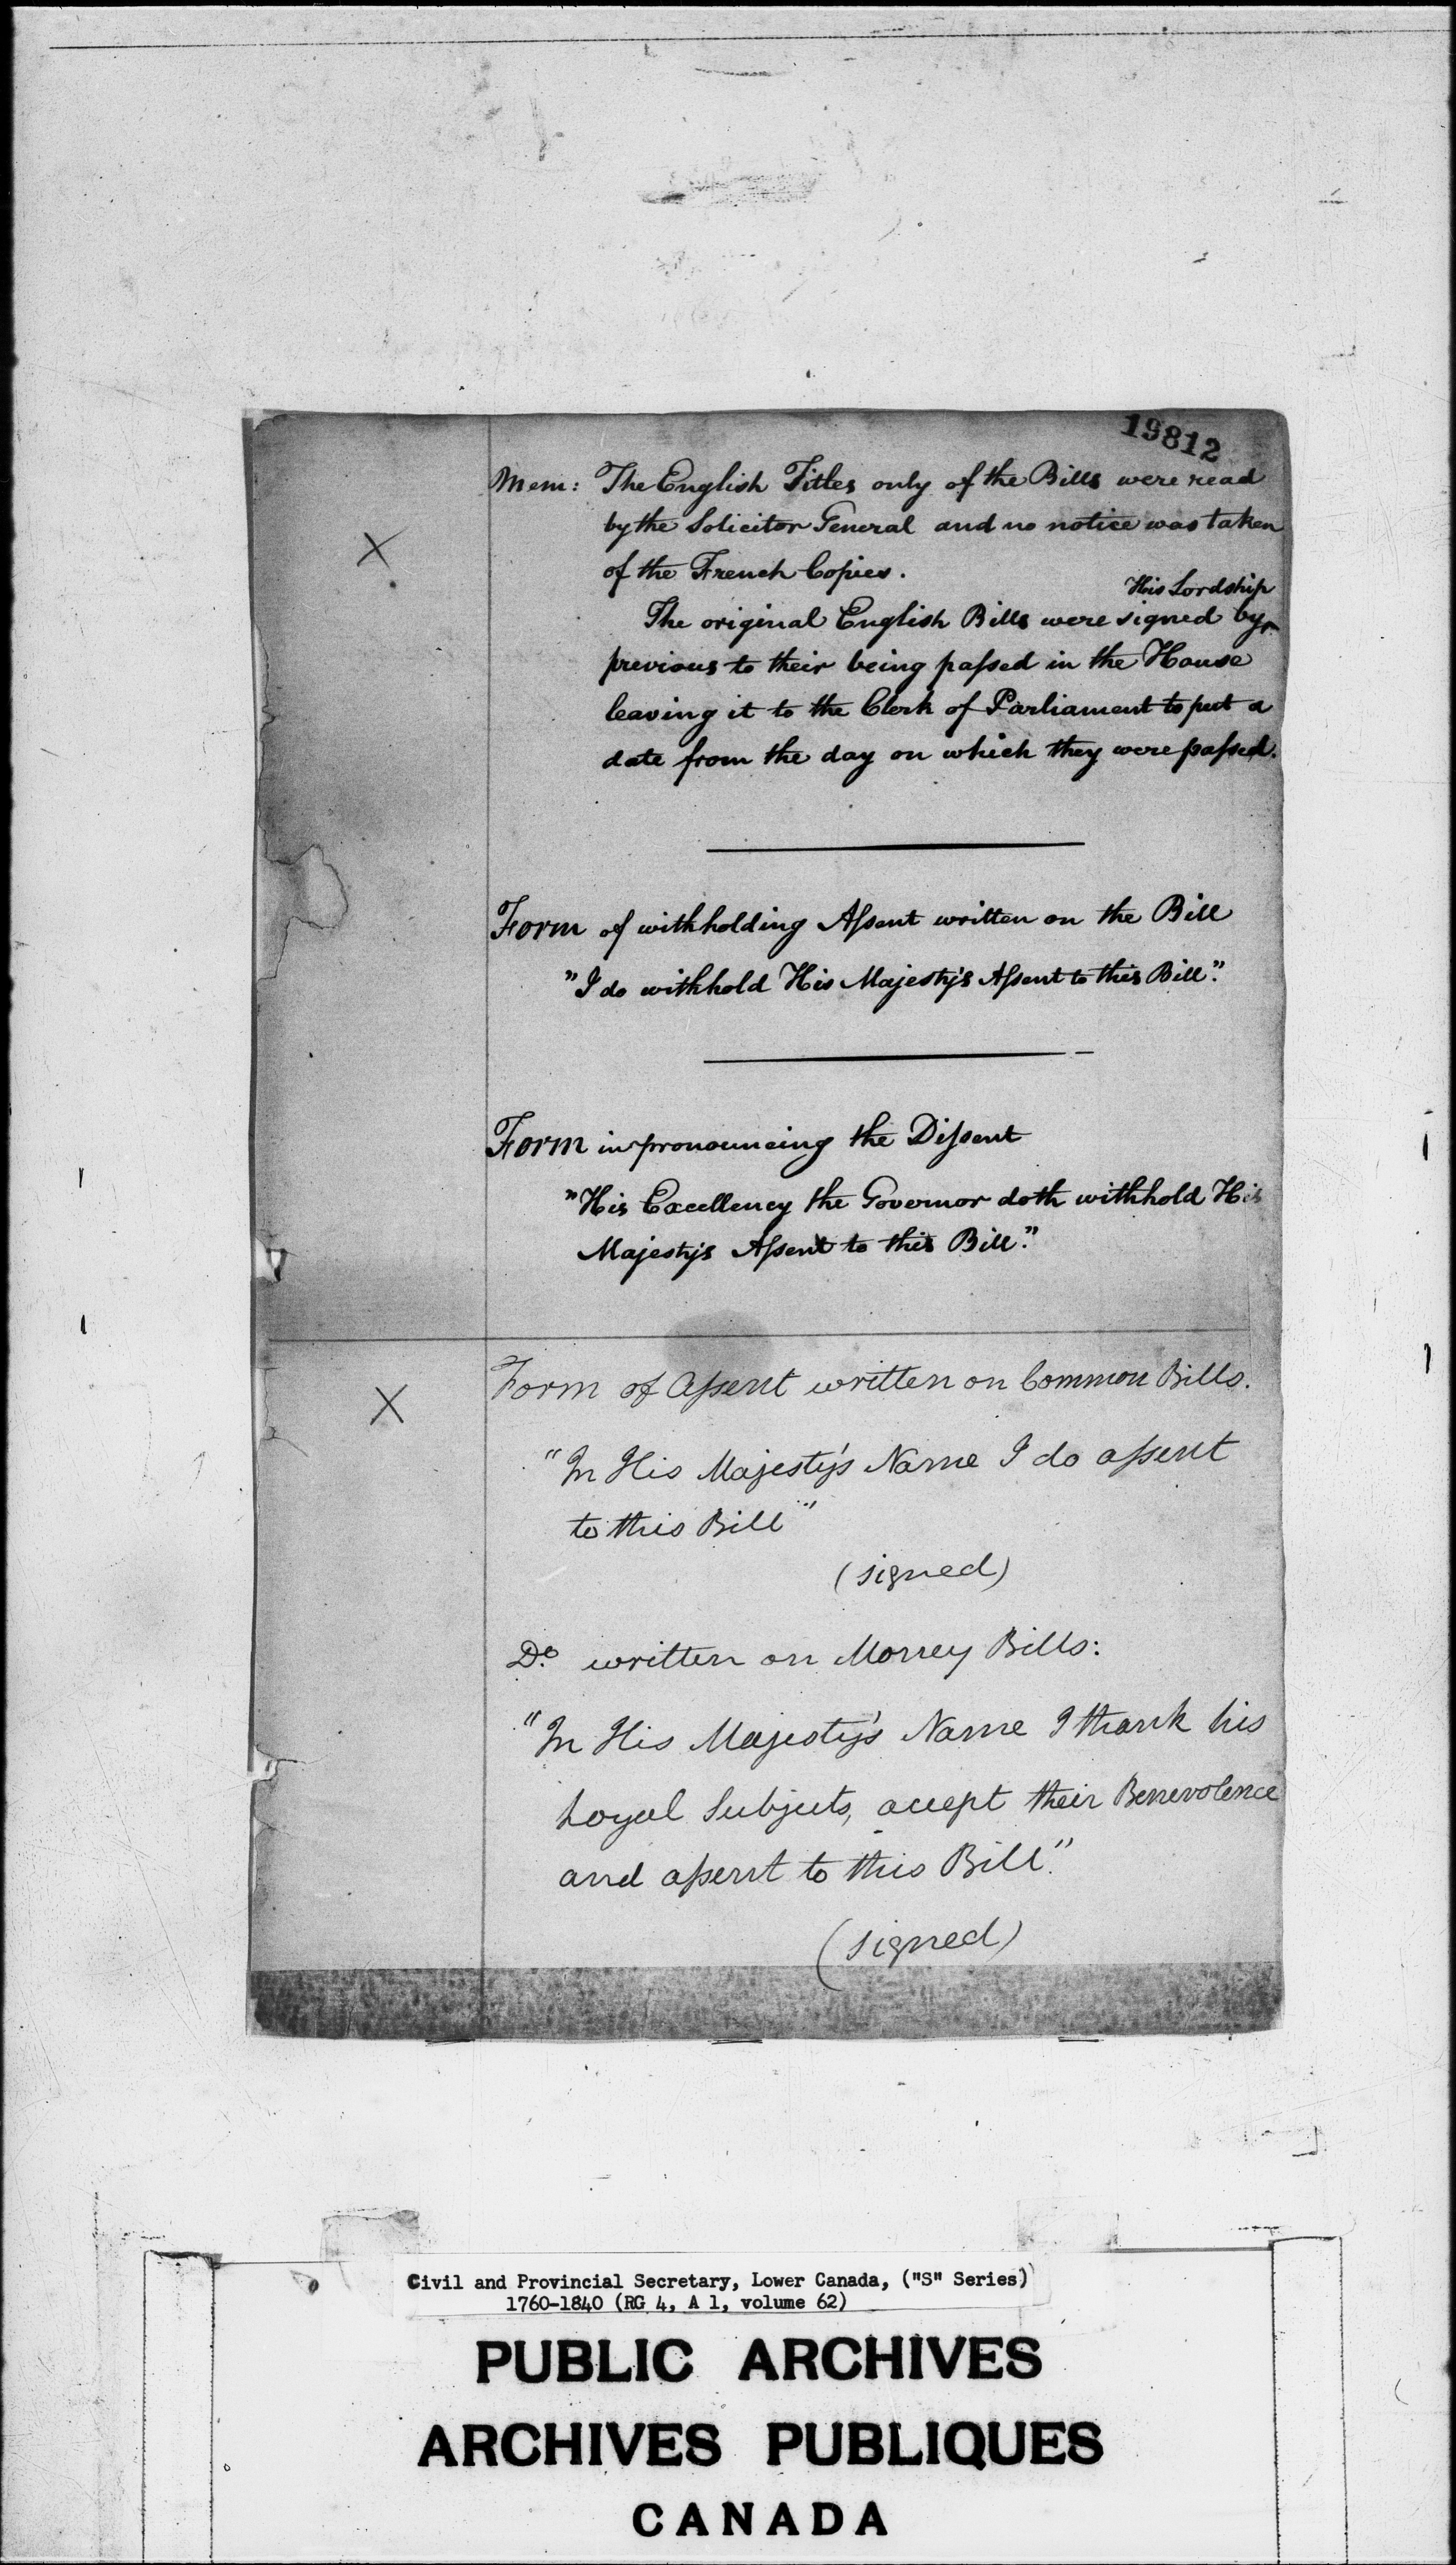 19812
Mem: The English Titles only of the Bills were read
by the Solicitor General and no notice was taken
of the French Copies.
His Lordship
The original English Bills were signed by‸
previous to their being paſsed in the House
leaving it to the Clerk of Parliament to put a
date from the day on which they were paſsed.
X
Form of withholding Aſsent written on the Bill
"I do withhold His Majesty's Aſsent to this Bill."
Form in pronouncing the Diſsent
"His Excellency the Governor doth withhold His
Majesty's Aſsent to this Bill."
Form of Aſsent written on Common Bills.
X
"In His Majesty's Name I do aſsent
to this Bill"
(signed)
Do. written on Money Bills:
"In His Majesty's Name I thank his
Loyal Subjects, accept their Benevolence
and aſsent to this Bill."
(signed)
Civil and Provincial Secretary, Lower Canada, ("S" Series)
1760-1840 (RG 4, A 1, volume 62)
PUBLIC ARCHIVES
ARCHIVES PUBLIQUES
CANADA